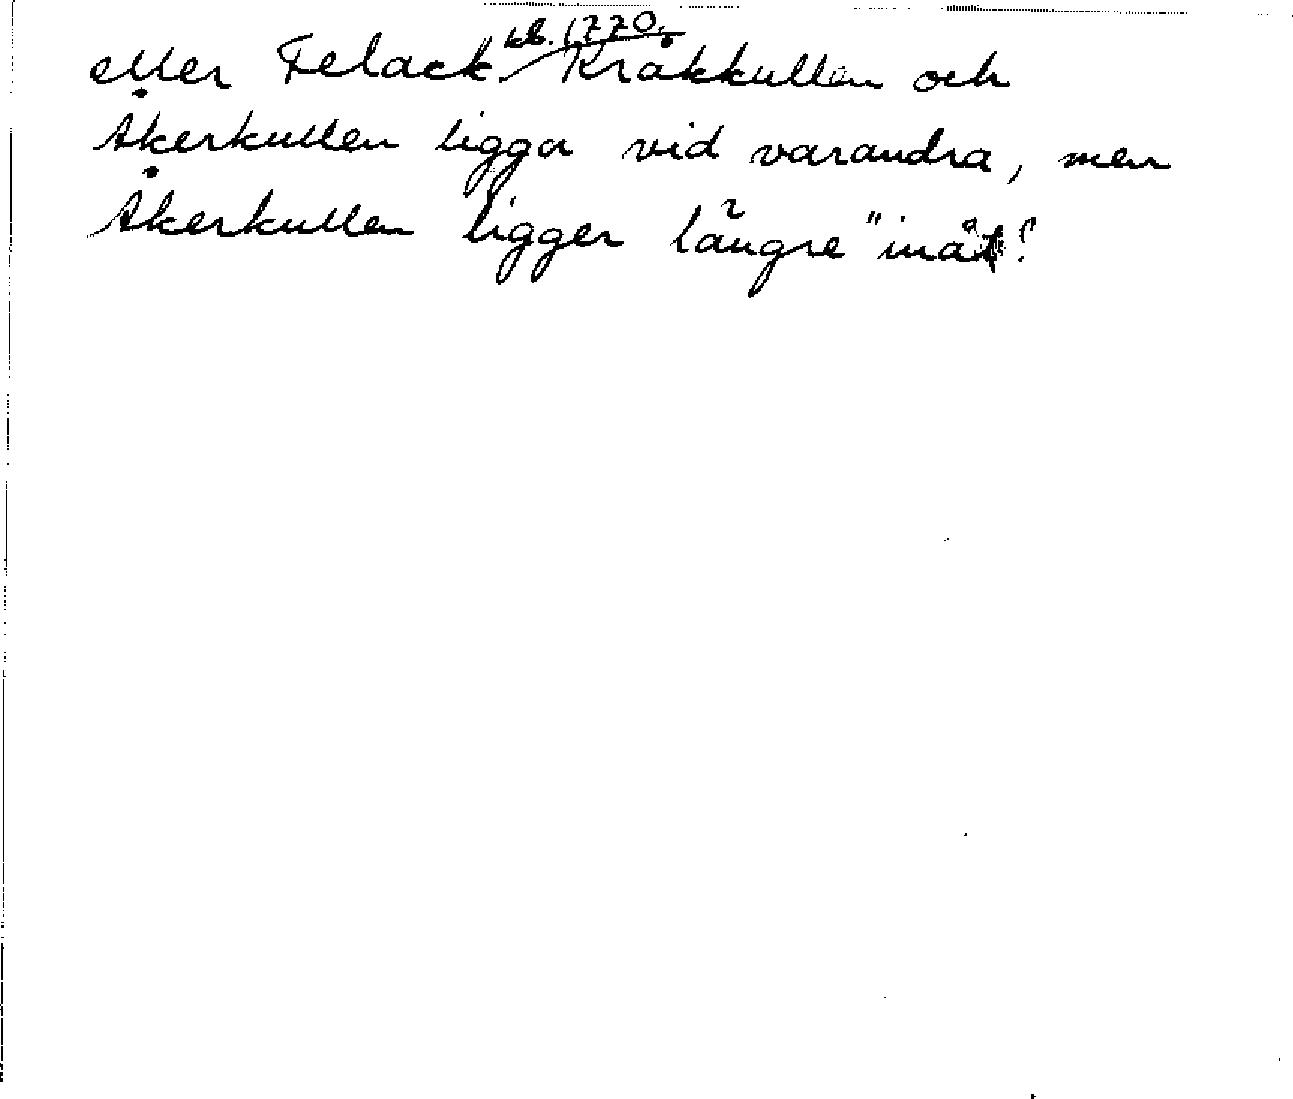 kb. 1770.
eller Felack. Kråkkullen och
Åkerkullen ligga vid varandra, men
Åkerkullen ligger längre "inåt".